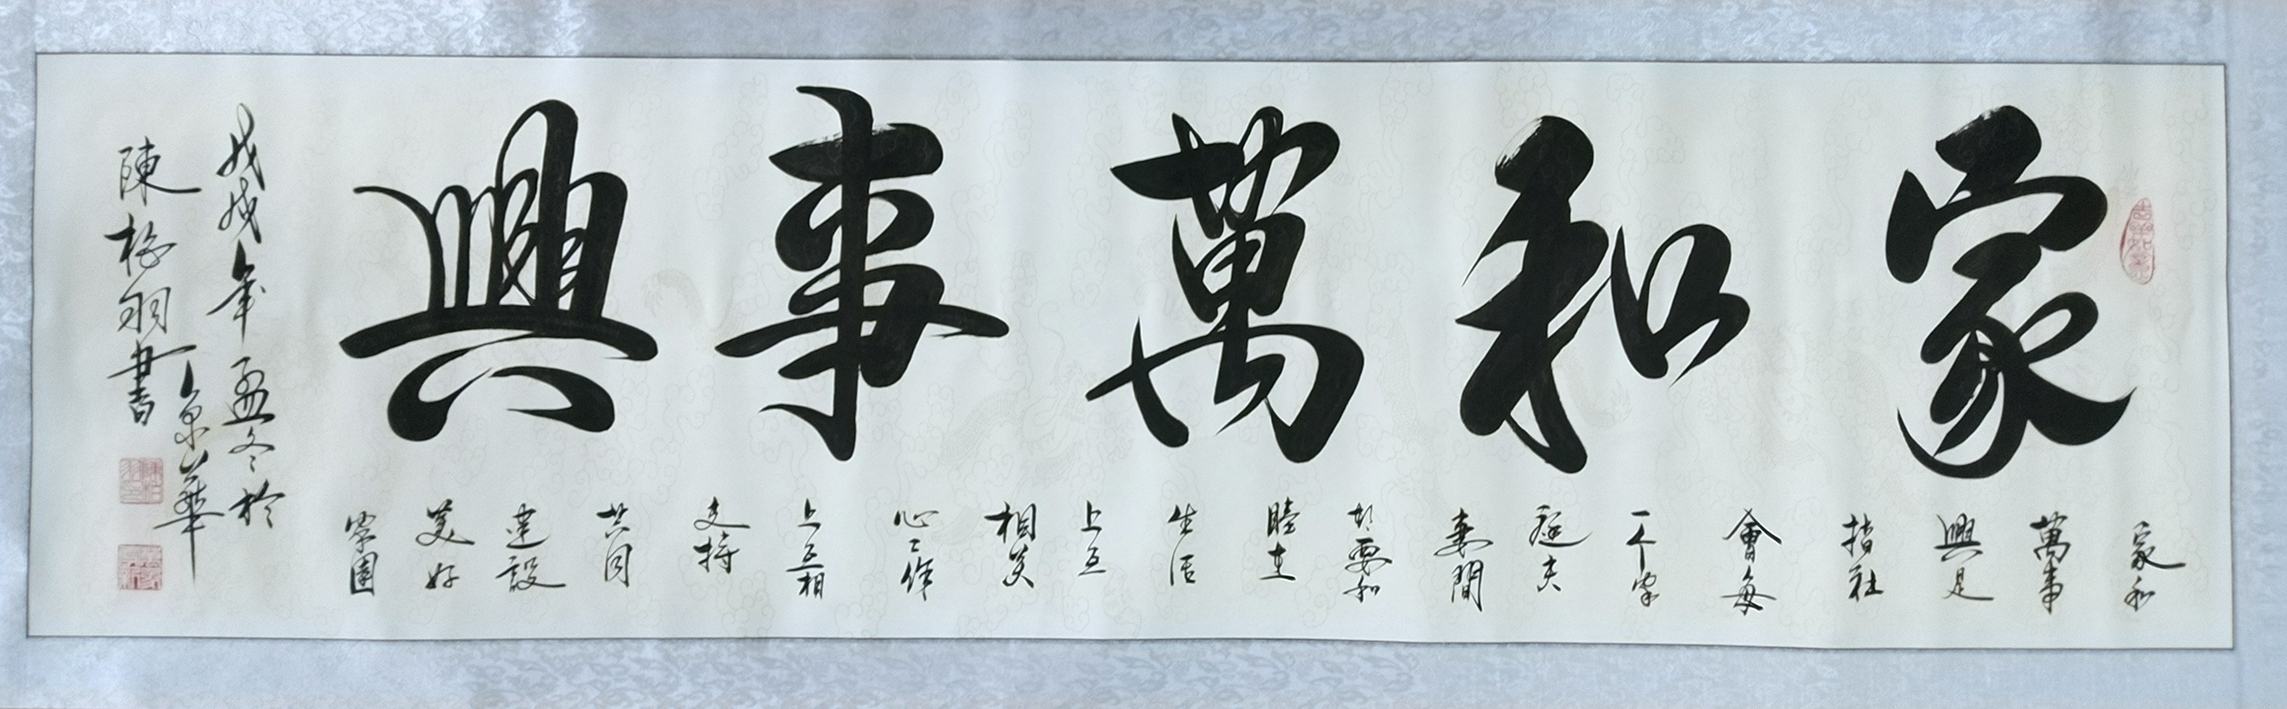 家和萬事興
家和
萬事
興是
指社
會每
一个家
庭夫
妻間
都要和
睦在
生活
上互
相关
心工作
上互相
支持
共同
建設
美好
家園
戊戌年孟冬於
京華
陳梅羽書